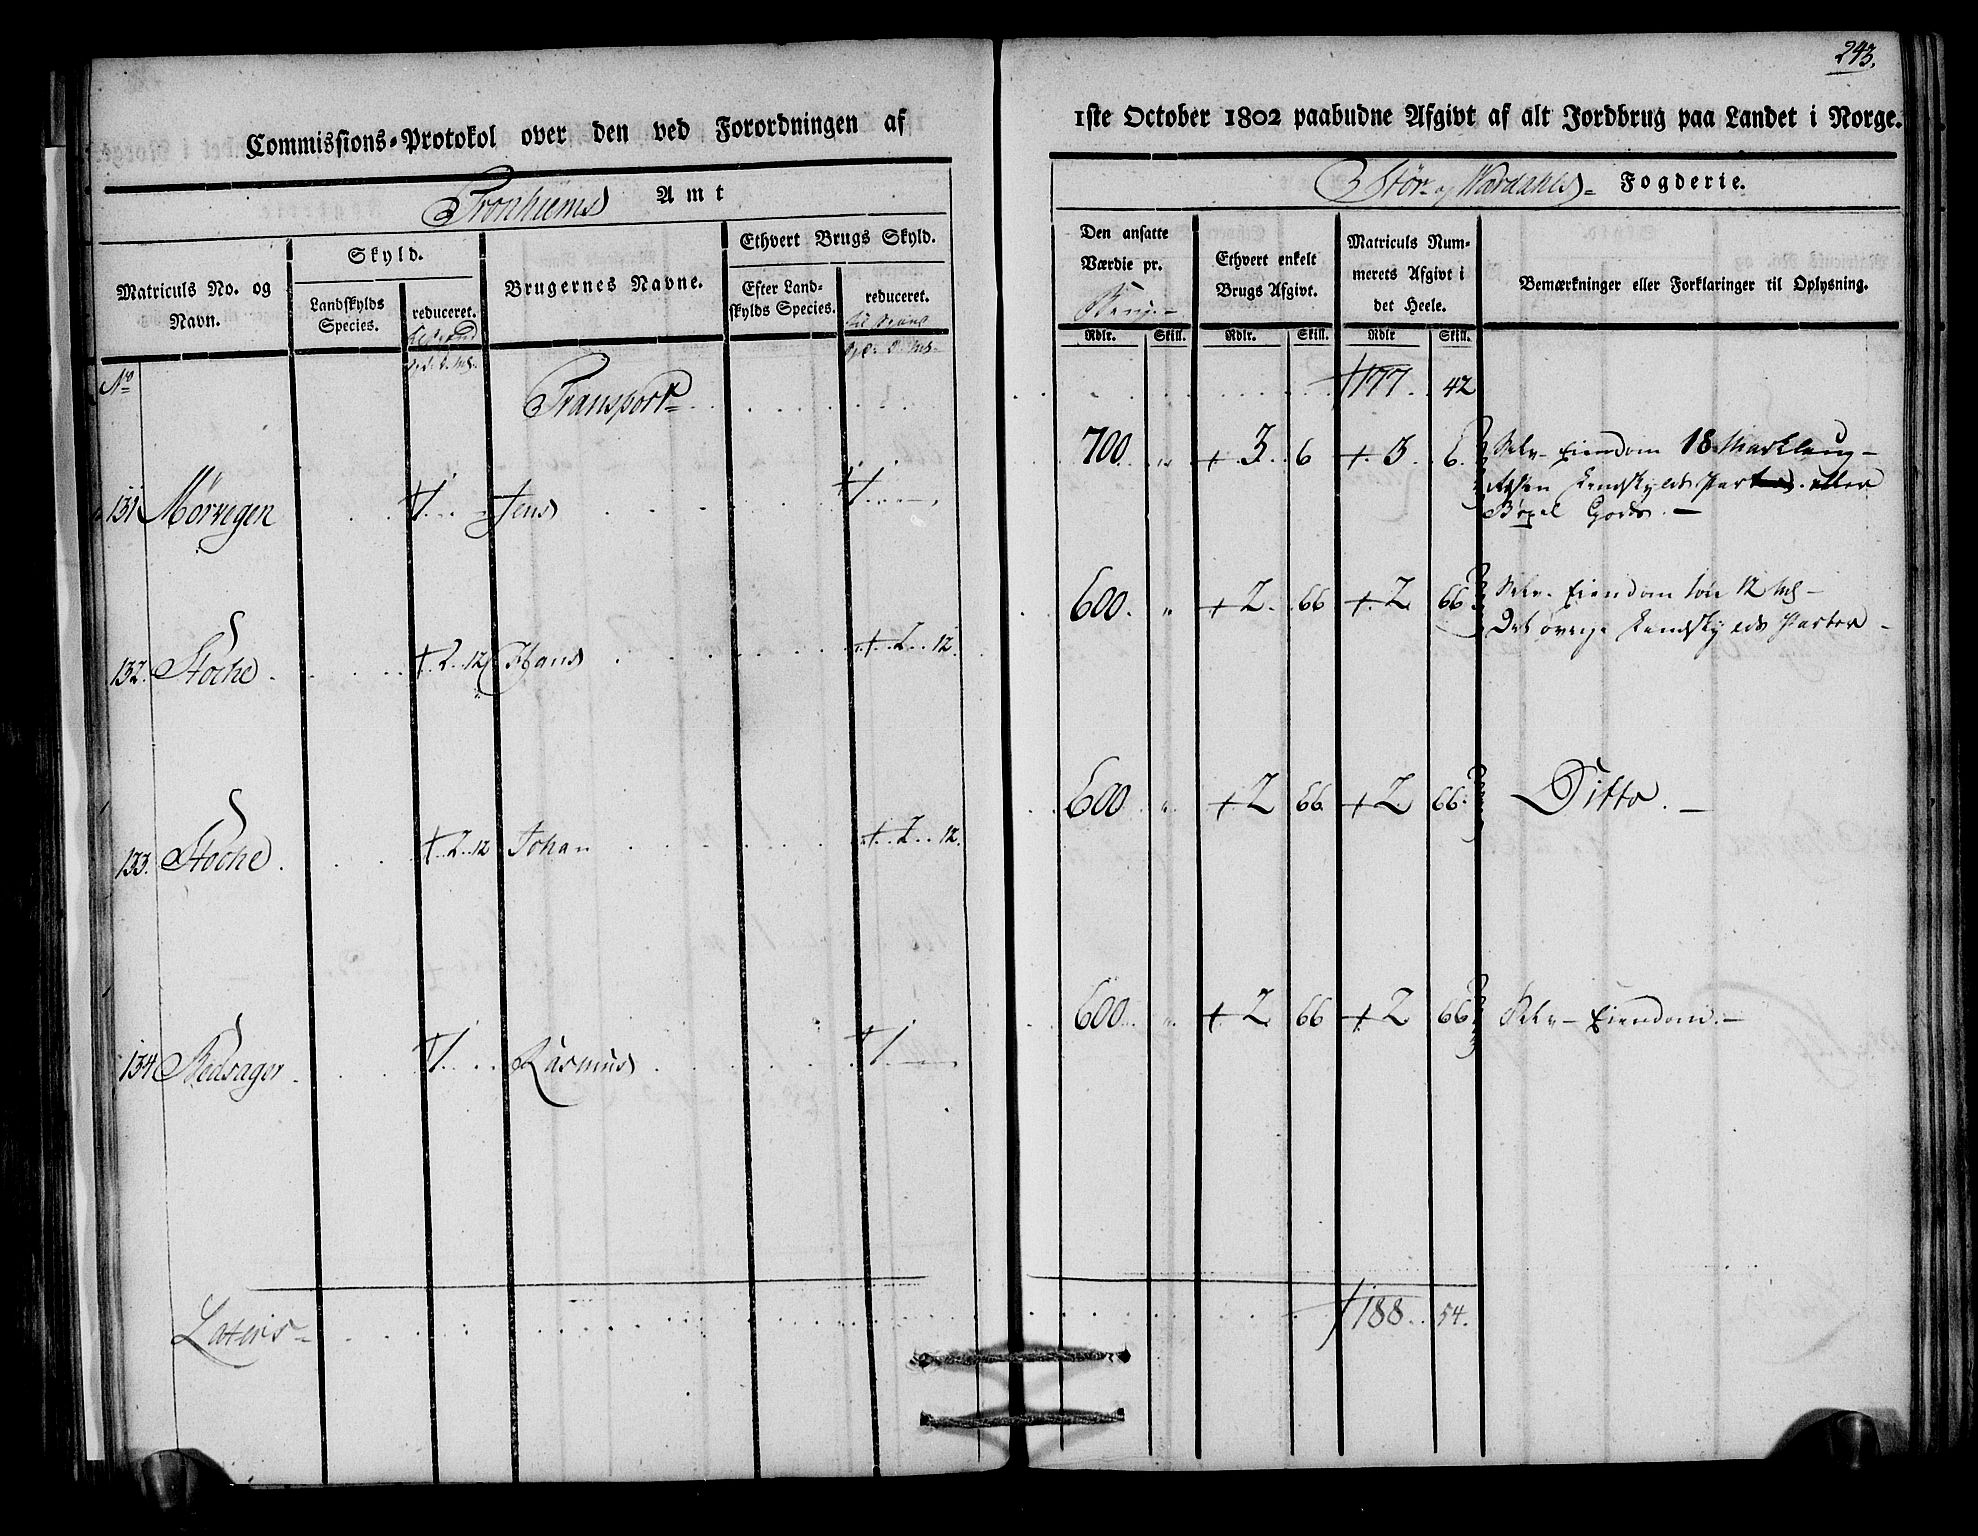 243.
Commissions-Protokol over den ved Forordningen af 1ste October 1802 paabudne Afgivt af alt Jordbrug paa Landet i Norge.
Tronhiems Amt
Stør og Wærdahls Fogderie.
Matriculs No. og Navn.
Skyld.
Landskylds Species.
reduceret.
Brugernes Navne.
Ethvert Brugs Skyld.
Efter Landskylds Species.
reduceret.
Den ansatte Værdie pr.
Rdlr. Skill.
Ethvert enkelt Brugs Afgivt.
Rdlr. Skill.
Matriculs Nummerets Afgivt i det Heele.
Rdlr Skill.
Bemærkninger eller Forklaringer til Oplysning.
No
Transport 177. 42
131 Mørvegen 1 Jens 1 700 " 3. 6 3 6. Selv-Eiendom 18 Marklaug
Landskylds Parten eller
Gods. —
132. Stoche 2 12 Hans 2 12. 600. " 2. 66 2. 66 Selv-Eiendom 12
Det øvrige Landskylds Parter
133. Stoche 2 12 Johan 2 12. 600 " 2 66 2 66. Ditto. —
134 Redsager 1 Rasmus 1 600 " 2 66 2 66 Selv-Eiendom. —
Lateris 188. 54.